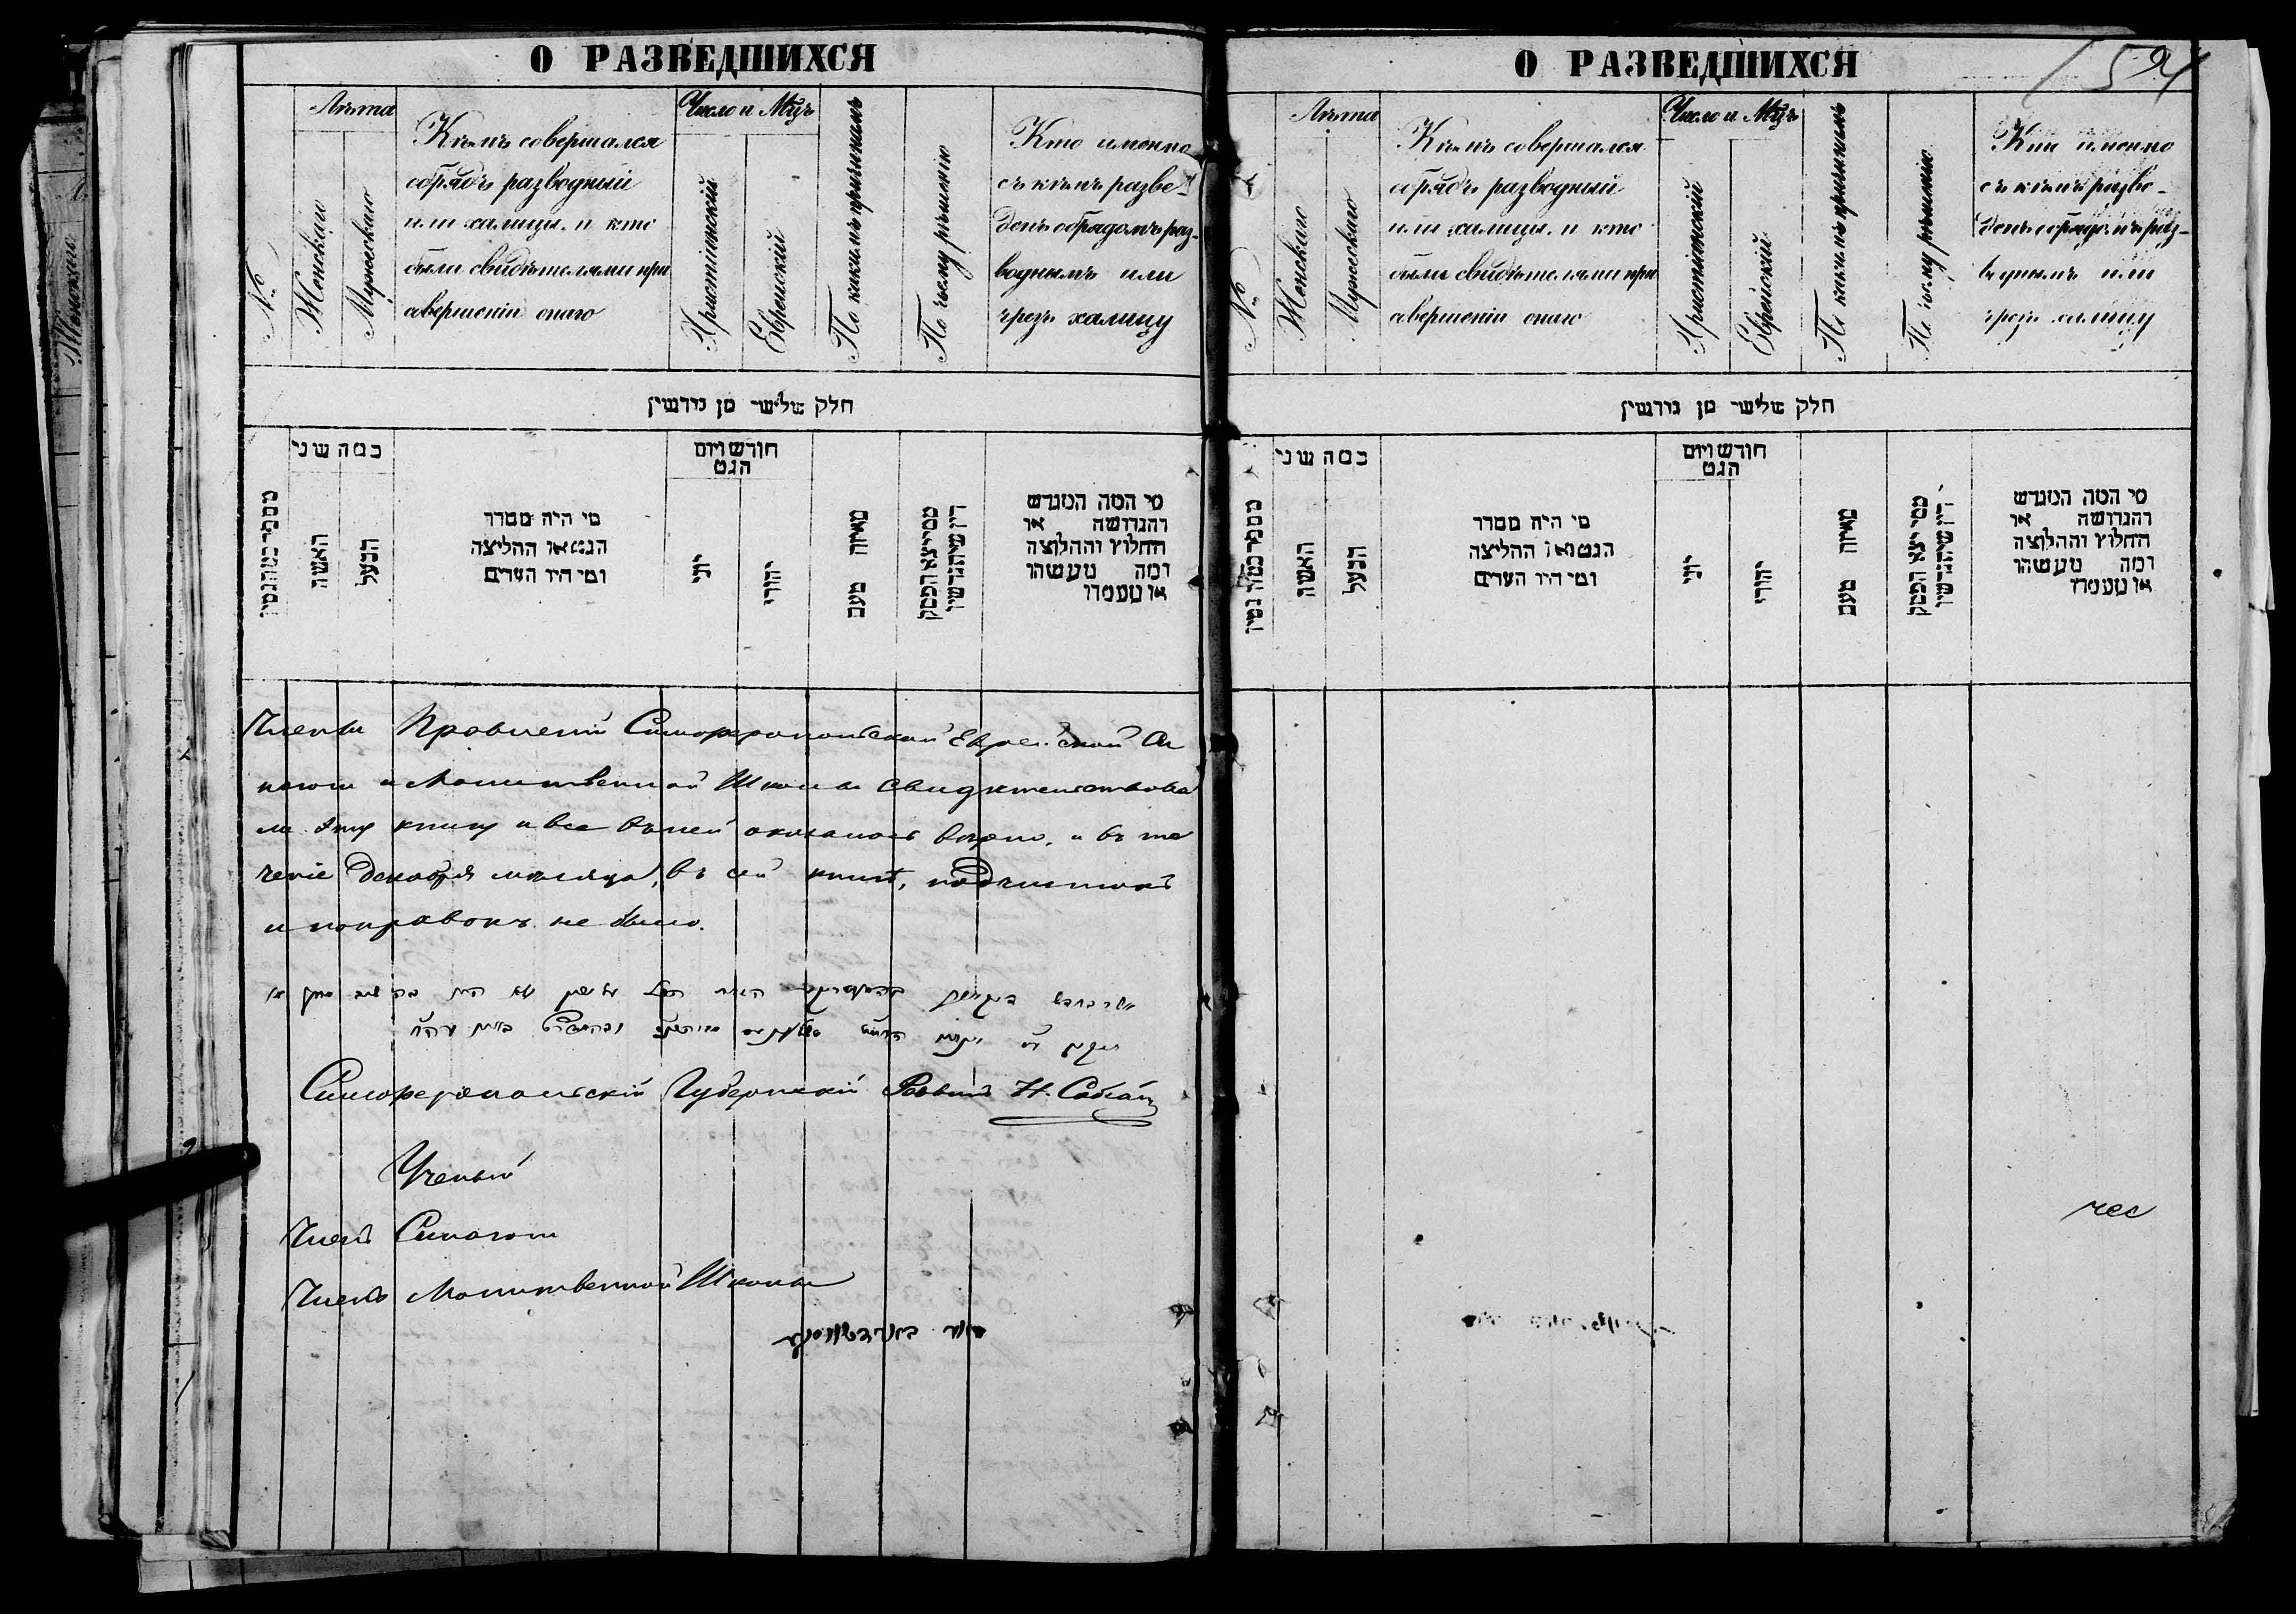 О РАЗВЕДШИХСЯ
№
Лѣта
Женскаго
Мужескаго
Кѣмъ совершался
обрядъ разводный
или халицы, и кто
были свидѣтелями при
совершеніи онаго
Число и Мцъ
Христіянскій
Еврейскій
По какимъ причинамъ
По чьему рѣшенію
Кто именно
съ кѣмъ разве-
денъ обрядомъ раз-
воднымъ или
чрезъ халицу
חלק שלישי מן גירושין
כמה שני
האשה
הבעל
מי היה מסדר
הגט או החליצה
ומי היו העדים
חודש ויום
הגט
יוני
יהודי
מאיזה טעם
ממי יצא הפסק
דין שיתגרשו
מי המה המגרש
והגרושה או
החלוץ והחלוצה
ומה מעשהו
או מעמדו
Члены Правленій Симферопольской Еврейской Си
нагоги и Молитвенной Школы свидѣтельствова
ли эту книгу и все въ ней оказалось вѣрно, и въ те
ченіе Декабря мѣсяца, въ сей книгѣ, подчистокъ
и поправокъ не было.
Симферопольскій Губернскій Раввинъ Н.
Ученый
Членъ Синагоги
Членъ Молитвенной Школы
О РАЗВЕДШИХСЯ
№
Лѣта
Женскаго
Мужескаго
Кѣмъ совершался
обрядъ разводный
или халицы, и кто
были свидѣтелями при
совершеніи онаго
Число и Мцъ
Христіянскій
Еврейскій
По какимъ причинамъ
По чьему рѣшенію
Кто именно
съ кѣмъ разве-
денъ обрядомъ раз-
воднымъ или
чрезъ халицу
חלק שלישי מן גירושין
כמה שני
האשה
הבעל
מי היה מסדר
הגט או החליצה
ומי היו העדים
חודש ויום
הגט
יוני
יהודי
מאיזה טעם
ממי יצא הפסק
דין שיתגרשו
מי המה המגרש
והגרושה או
החלוץ והחלוצה
ומה מעשהו
או מעמדו